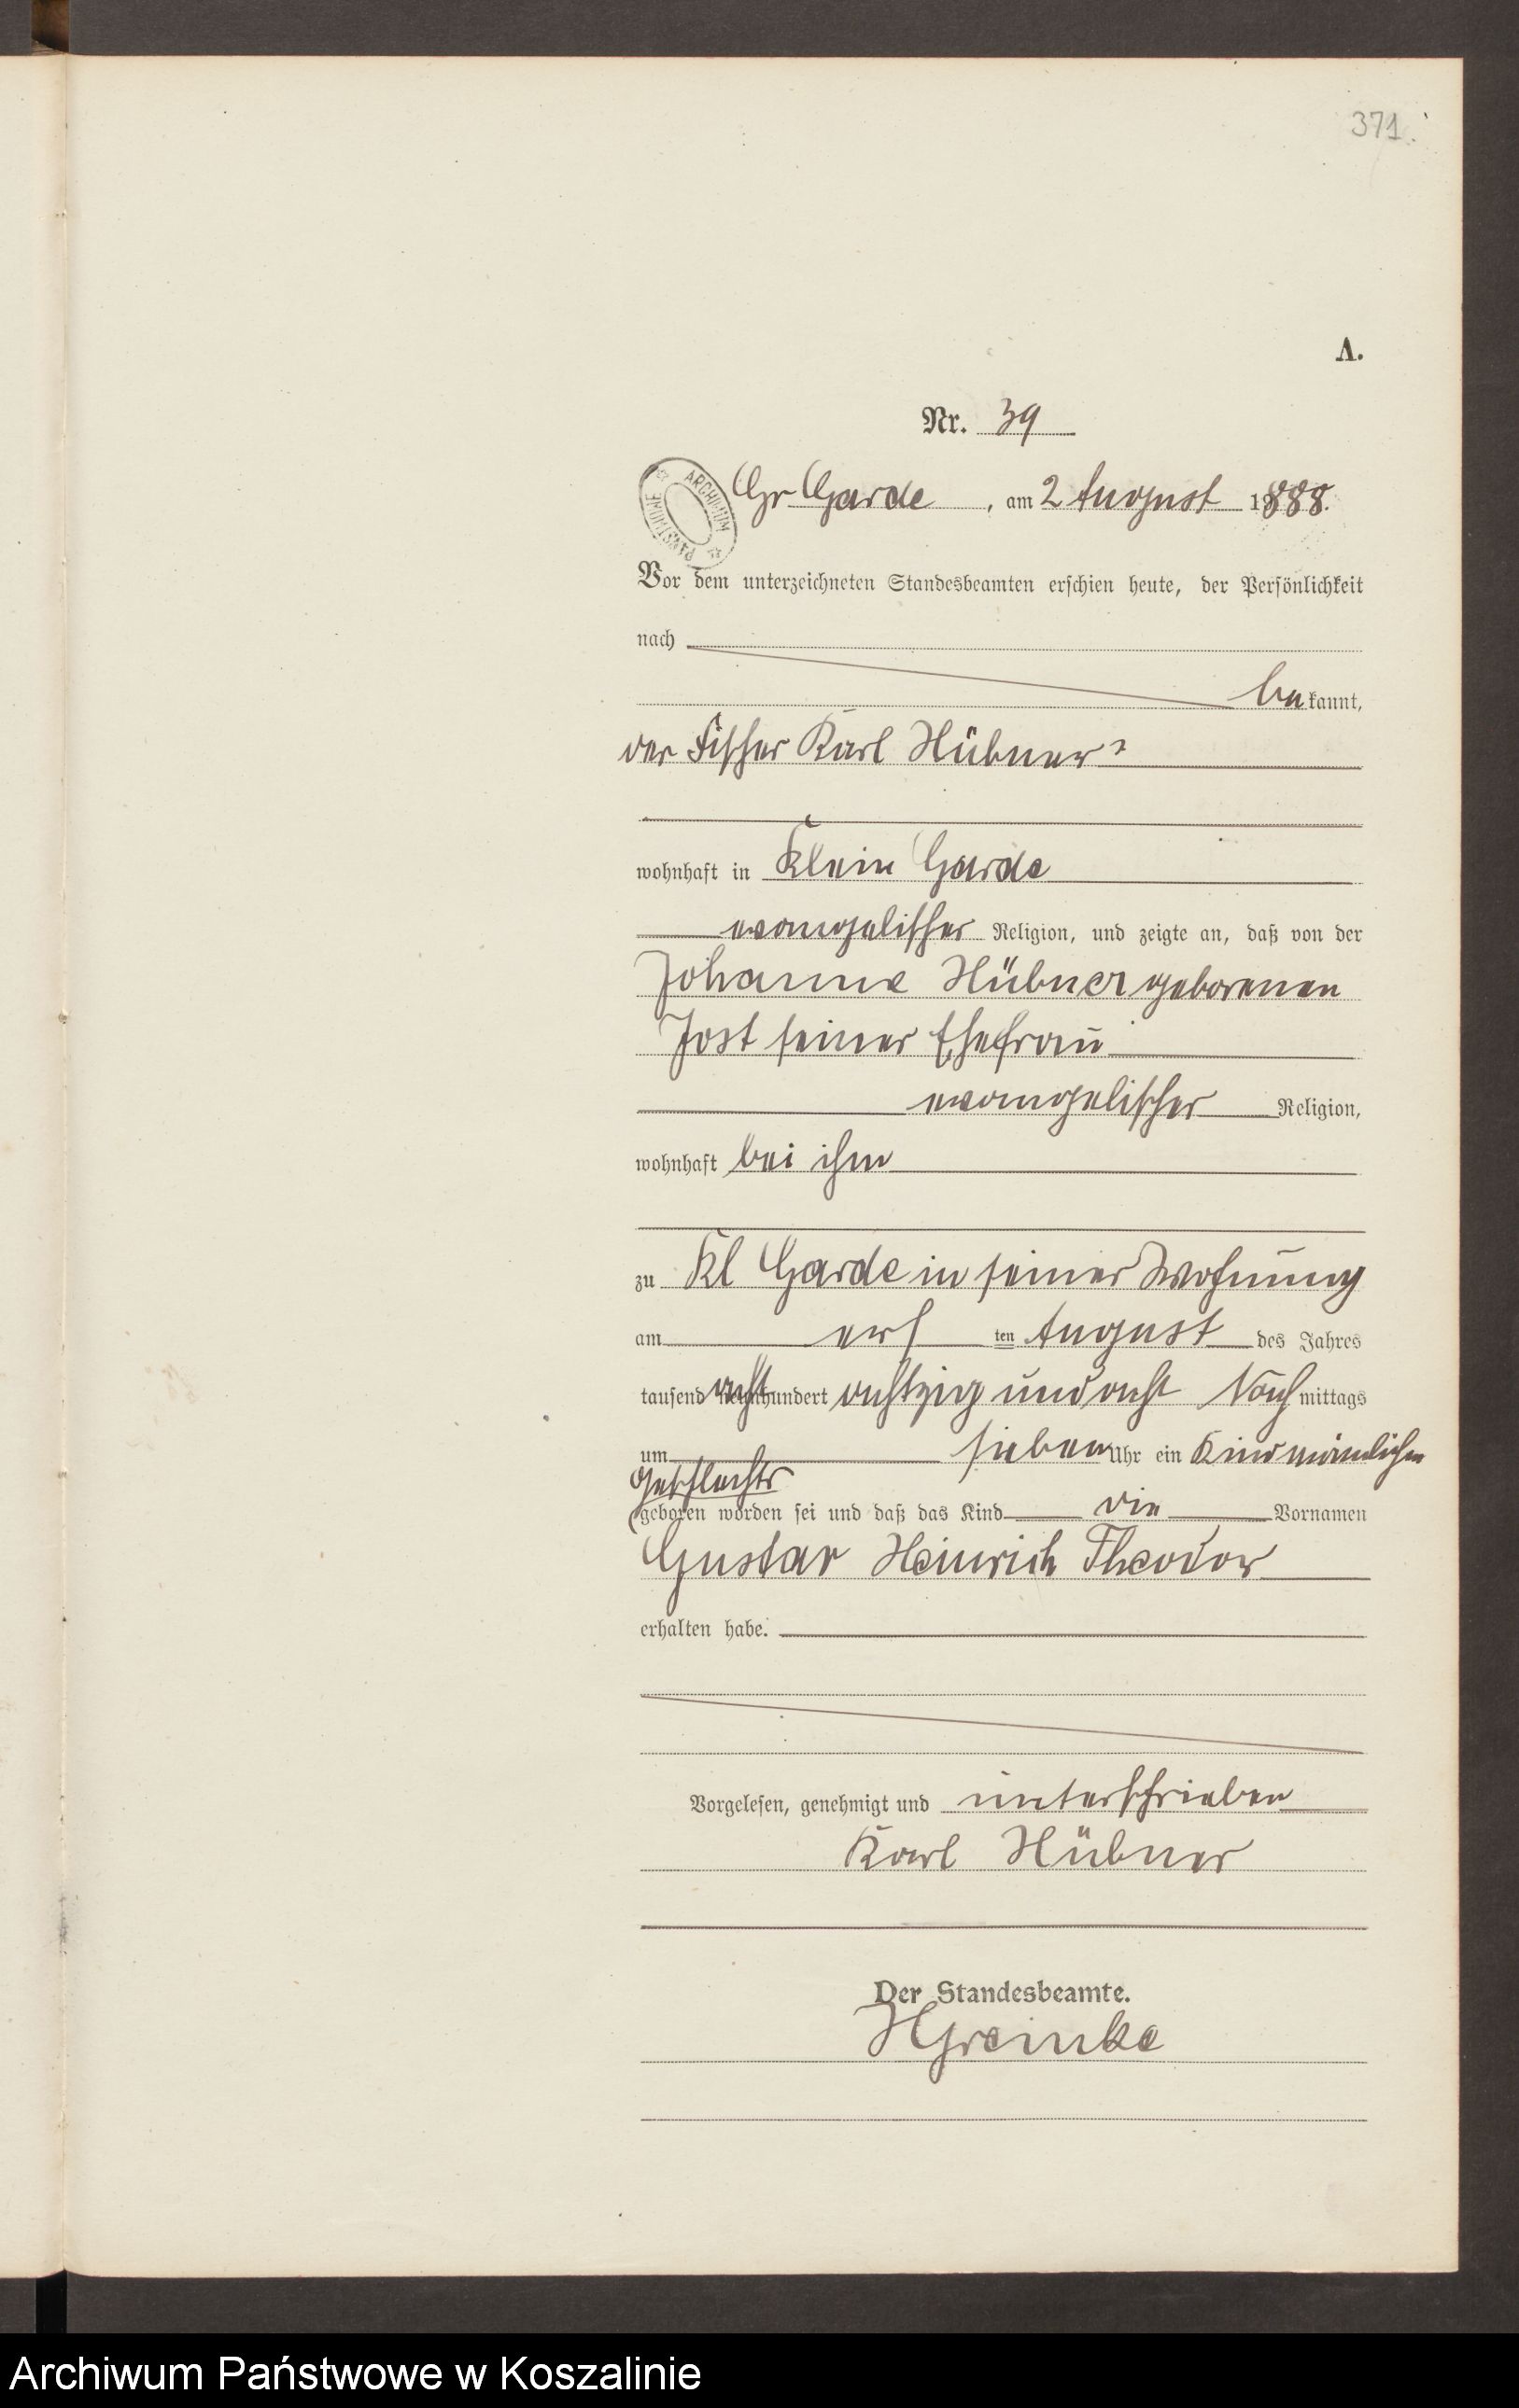 371.
A.
Nr. 39
ARCHIWUM PAŃSTWOWE
Gr Garde, am 2 August 1888.
Vor dem unterzeichneten Standesbeamten erschien heute, der Persönlichkeit
nach
bekannt,
der Fischer Karl Hübner
wohnhaft in Klein Garde
evangelischer Religion, und zeigte an, daß von der
Johanne Hübner geborenen
Jost seiner Ehefrau
evangelischer Religion,
wohnhaft bei ihm
zu Kl Garde in seiner Wohnung
am ersten August des Jahres
tausend achthundert achtzig und acht Nachmittags
um sieben Uhr ein Kind männlichen
Geschlechts
geboren worden sei und daß das Kind die Vornamen
Gustav Heinrich Theodor
erhalten habe.
Vorgelesen, genehmigt und unterschrieben
Karl Hübner
Der Standesbeamte.
HGreinke
Archiwum Państwowe w Koszalinie